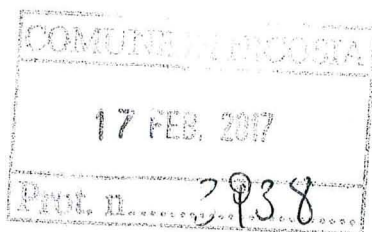 COMUNE DI NICOSIA
17 FEB. 2017
Prot. n. 3938